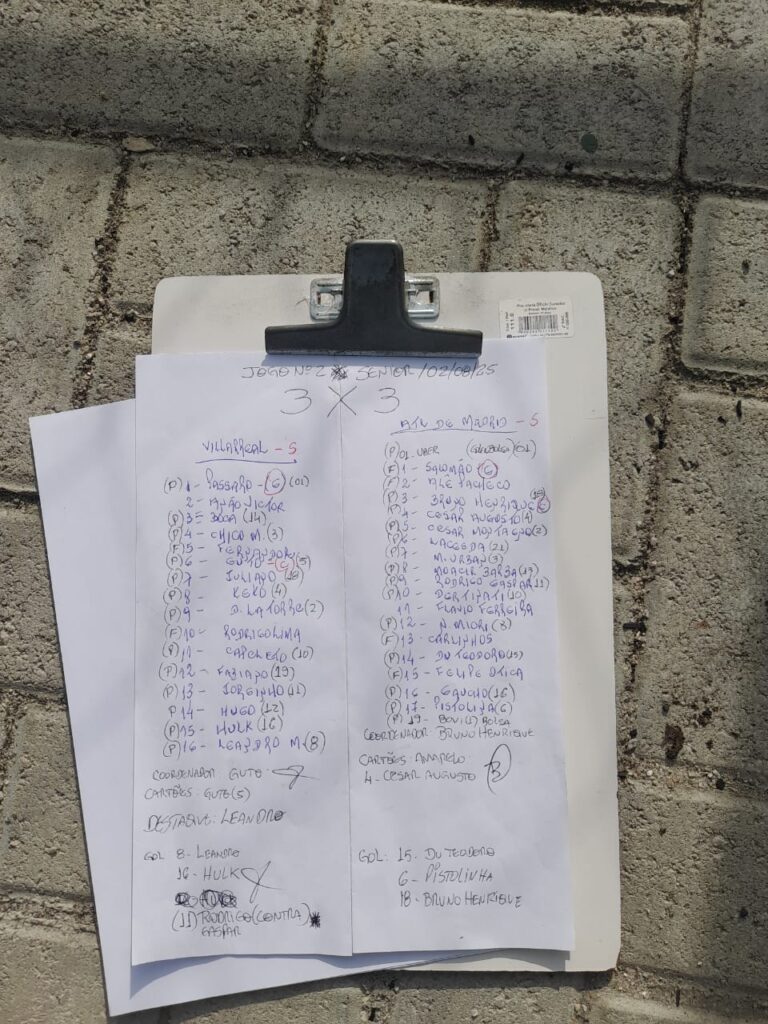 JOGO Nº 2 SENIOR / 02/08/25
3 X 3
VILLARREAL - S
(P) 1 - PASSARO - (G) (01)
2 - JOÃO VICTOR
(P) 3 - BOCA (14)
(P) 4 - CHICO M. (3)
(F) 5 - FERNANDOR
(P) 6 - GUTO - (C) (5)
(P) 7 - JULIANO (18)
(P) 8 - KEKO (4)
(P) 9 - D. LATORRE (2)
(F) 10 - RODRIGO LIMA
(P) 11 - (10)
(P) 12 - FABIANO (19)
(P) 13 - JORGINHO (11)
P 14 - HUGO (12)
(P) 15 - HULK (16)
(P) 16 - LEANDRO M. (8)
COORDENADOR: GUTO
CARTÕES: GUTO (5)
DESTAQUE: LEANDRO
GOL 8 - LEANDRO
16 - HULK
(11) RODRIGO (CONTRA)
GASPAR
ATL DE MADRID - S
(P) 01. UBER (01)
(F) 1 - SALOMÃO (G)
(F) 2 - ALE PACHECO
(P) 3 - BRUNO HENRIQUE (18) (C)
(P) 4 - CESAR AUGUSTO (4)
(P) 5 - CESAR MONTAGNO (2)
(P) 6 - LACERDA (21)
(P) 7 - M. URBAN (7)
(P) 8 - MOACIR BARBA (17)
(P) 9 - RODRIGO GASPAR (11)
(P) 10 - DERTINATI (10)
11 - FLAVIO FERREIRA
(P) 12 - N. MIORI (8)
(F) 13 - CARLINHOS
(P) 14 - DU TEODORO (15)
(F) 15 - FELIPE OTICA
(P) 16 - GAUCHO (16)
(P) 17 - PISTOLINHA (6)
(P) 19 - BOVI (1) BOLSA
COORDENADOR: BRUNO HENRIQUE
CARTÕES: AMARELO
4 - CESAR AUGUSTO
GOL: 15 - DU TEODORO
6 - PISTOLINHA
18 - BRUNO HENRIQUE